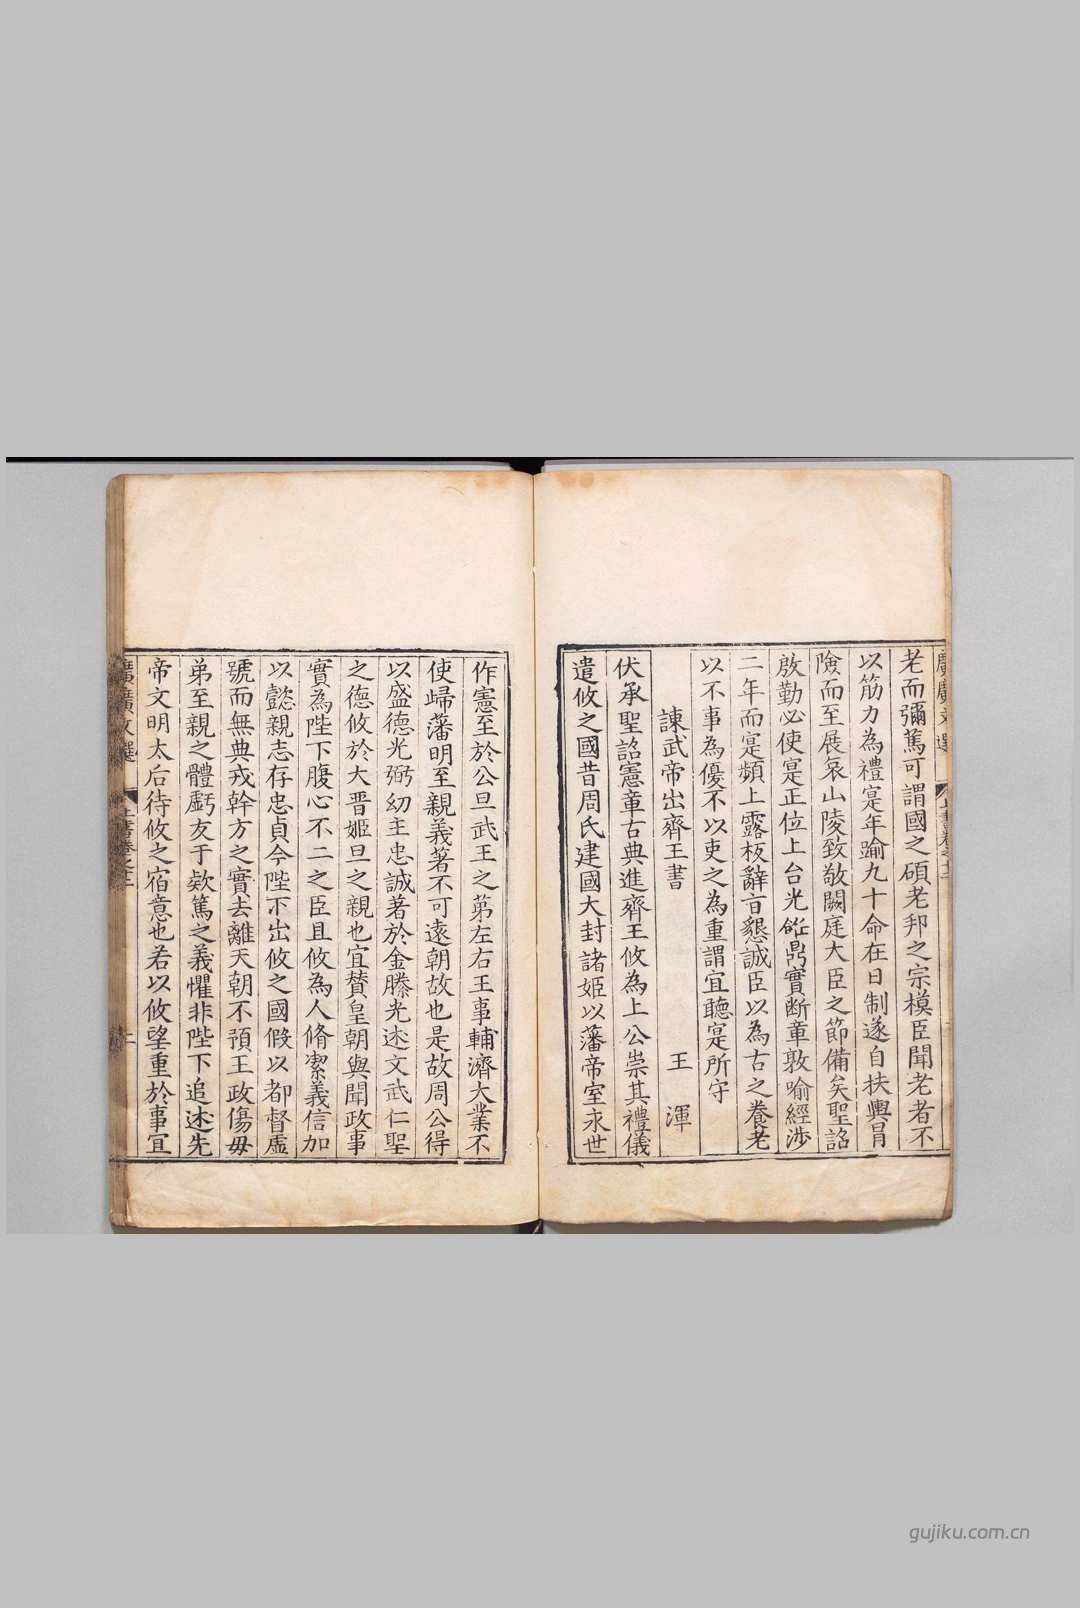 老而彌篤可謂國之碩老邦之宗模臣聞老者不
以筋力為禮寔年踰九十命在日制遂自扶輿冐
險而至展哀山陵致敬闕庭大臣之節備矣聖詔
啟勤必使寔正位上台光飪鼎實断章敦喻經涉
二年而寔頻上露板辭㫖懇誠臣以為古之養老
以不事為優不以吏之為重謂宜聽寔所守
諫武帝出齊王書 王渾
伏承聖詔憲章古典進齊王攸為上公崇其禮儀
遣攸之國昔周氏建國大封諸姬以藩帝室永世
作憲至於公旦武王之苐左右王事輔濟大業不
使歸藩明至親義著不可遠朝故也是故周公得
以盛德光弼幼主忠誠著於金縢光述文武仁聖
之德攸於大晋姬旦之親也宜賛皇朝與聞政事
實為陛下腹心不二之臣且攸為人脩潔義信加
以懿親志存忠貞今陛下出攸之國假以都督虛
號而無典戎幹方之實去離天朝不預王政傷毋
弟至親之體虧友于欵篤之義懼非陛下追述先
帝文明太后待攸之宿意也若以攸望重於事冝
廣廣文選
上書卷之十二
二
gujiku.com.cn